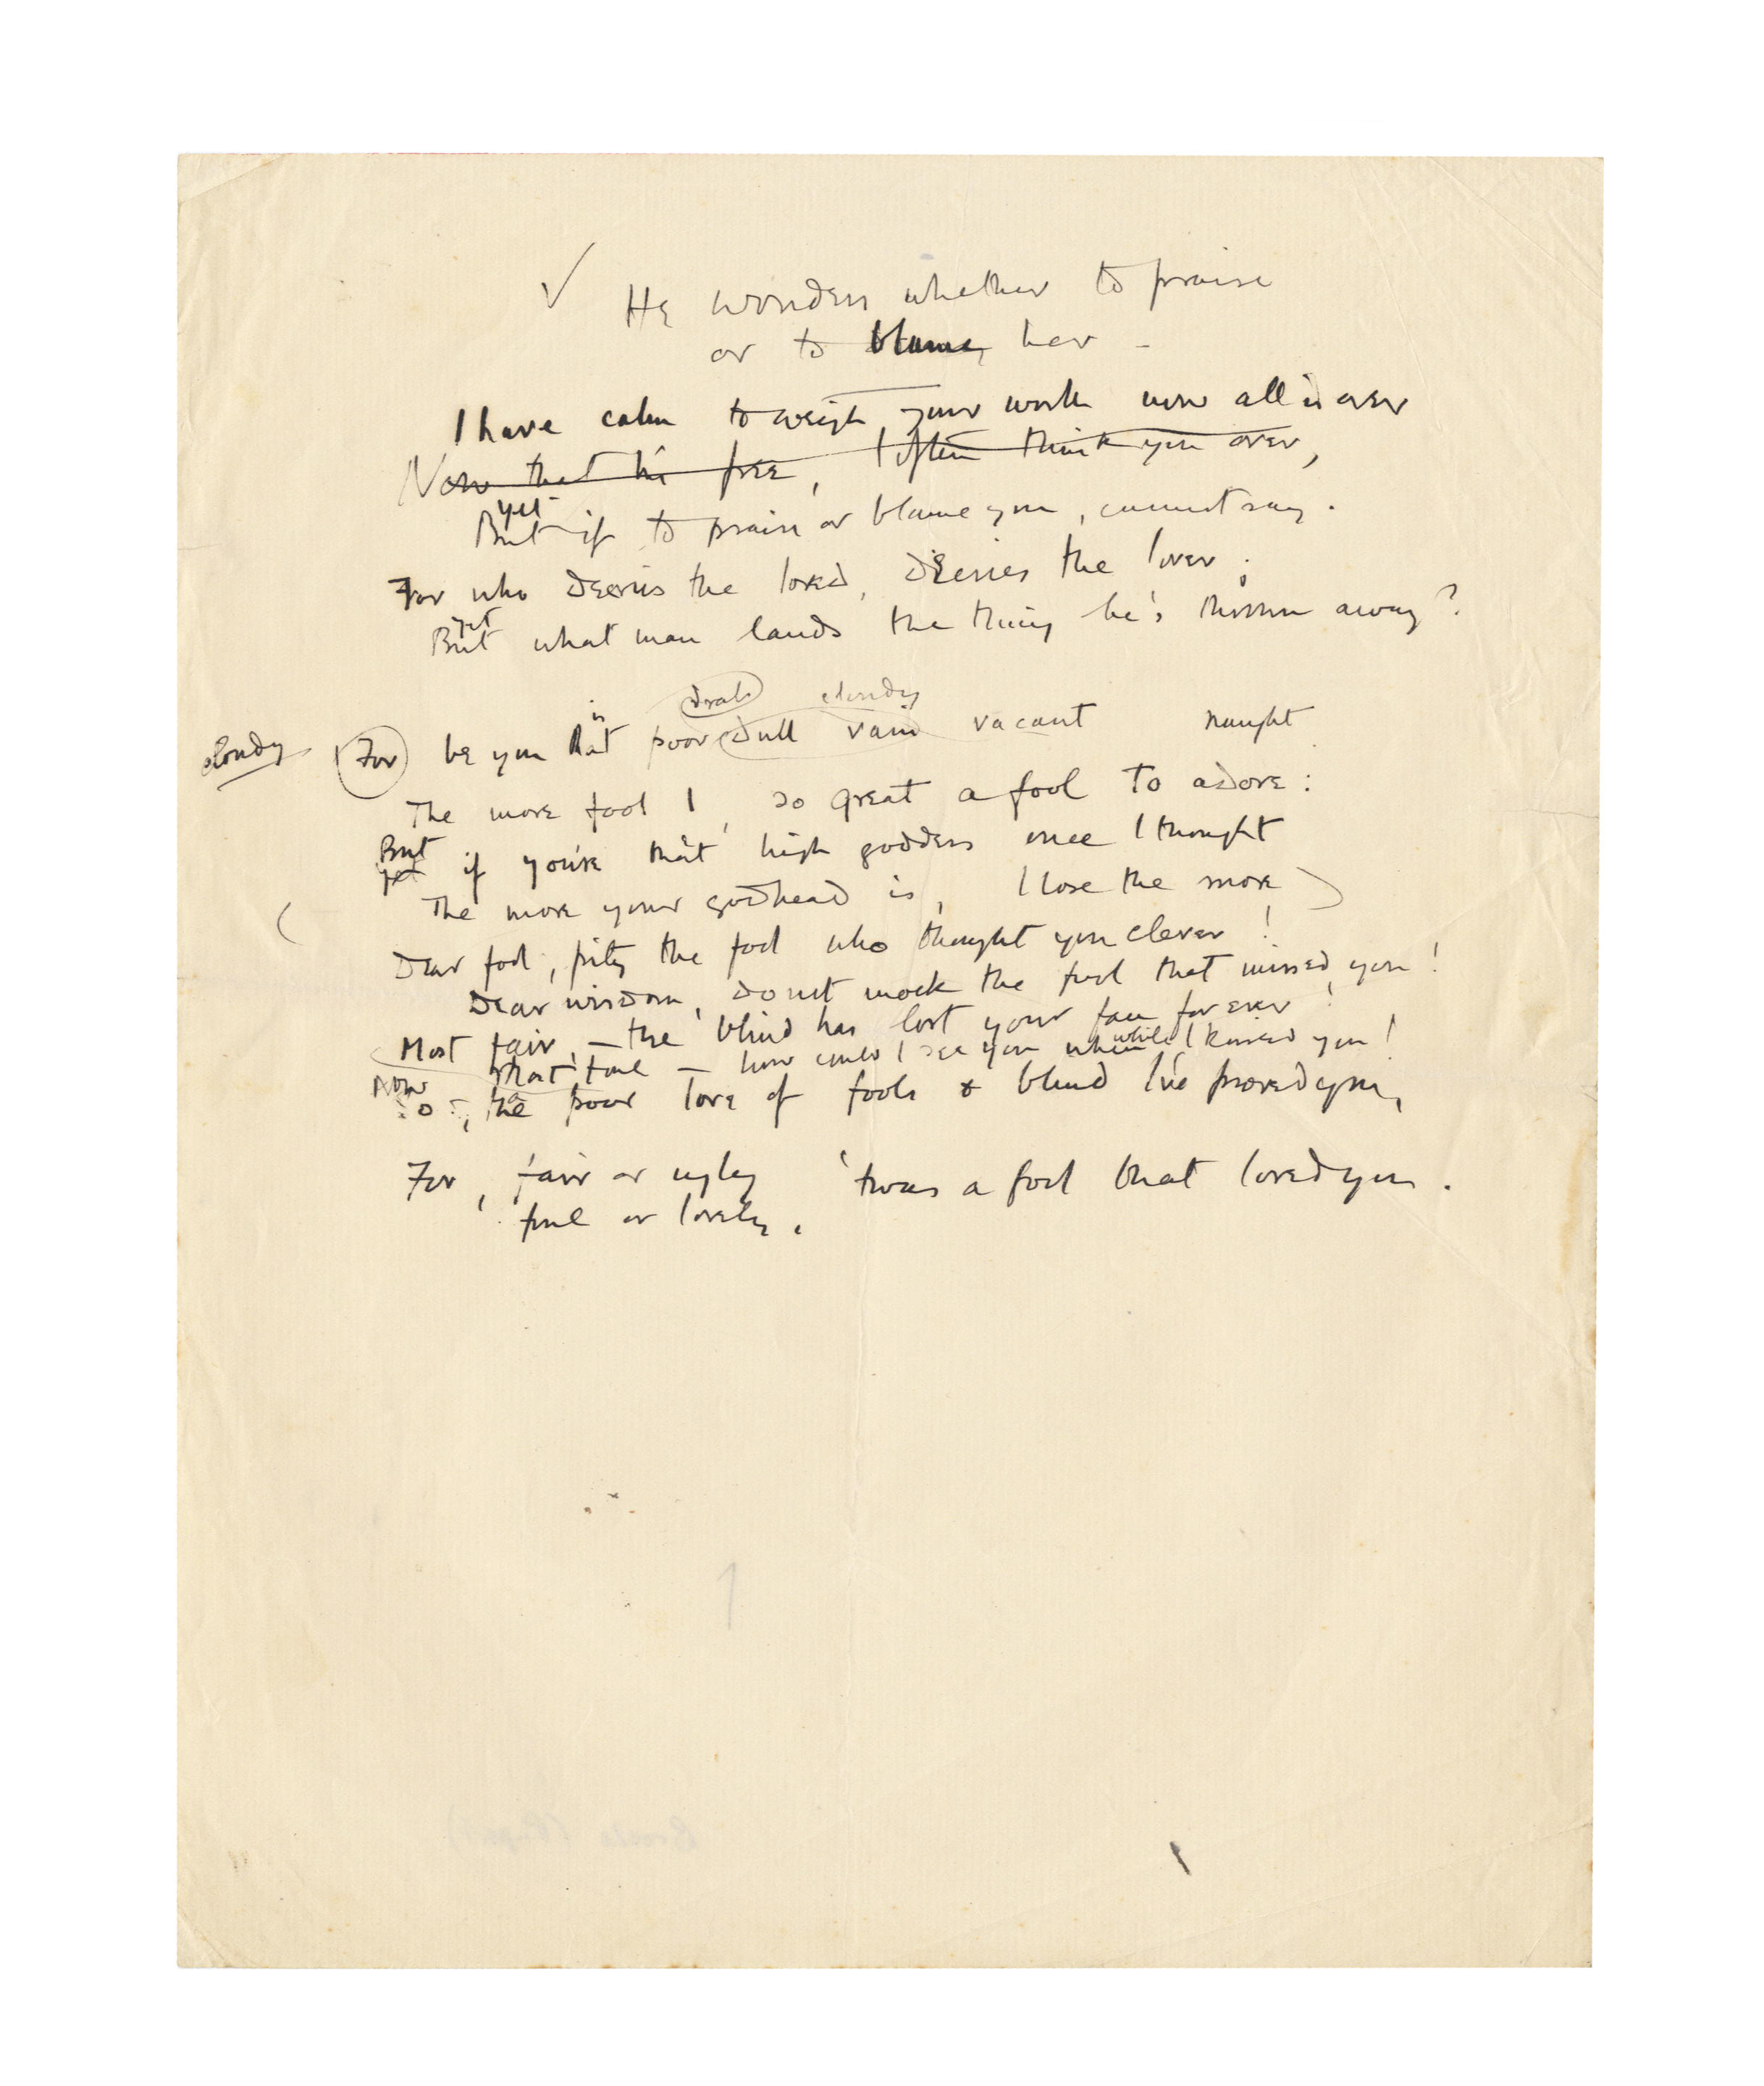 ✓ He wonders whether to praise
or to blame her –
I have calm to weigh your worth now all is over
Now that I'm free, I often think you over,
yet
But if to praise or blame you, cannot say.
For who decries the loved, decries the lover;
yet
But what man lauds the thing he's thrown away?
drab cloudy
is
cloudy For be you that poor dull vain vacant naught
The more fool I, so great a fool to adore:
But
yet if you're that high goddess once I thought
The more your godhead is, I lose the more
Dear fool, pity the fool who thought you clever!
Dear wisdom, do not mock the fool that missed you!
Most fair, – the blind has lost your face for ever!
Most foul – how could I see you when while I kissed you!
Now
So, the poor love of fools & blind I've proved you,
For, fair or ugly 'twas a fool that loved you.
foul or lovely,